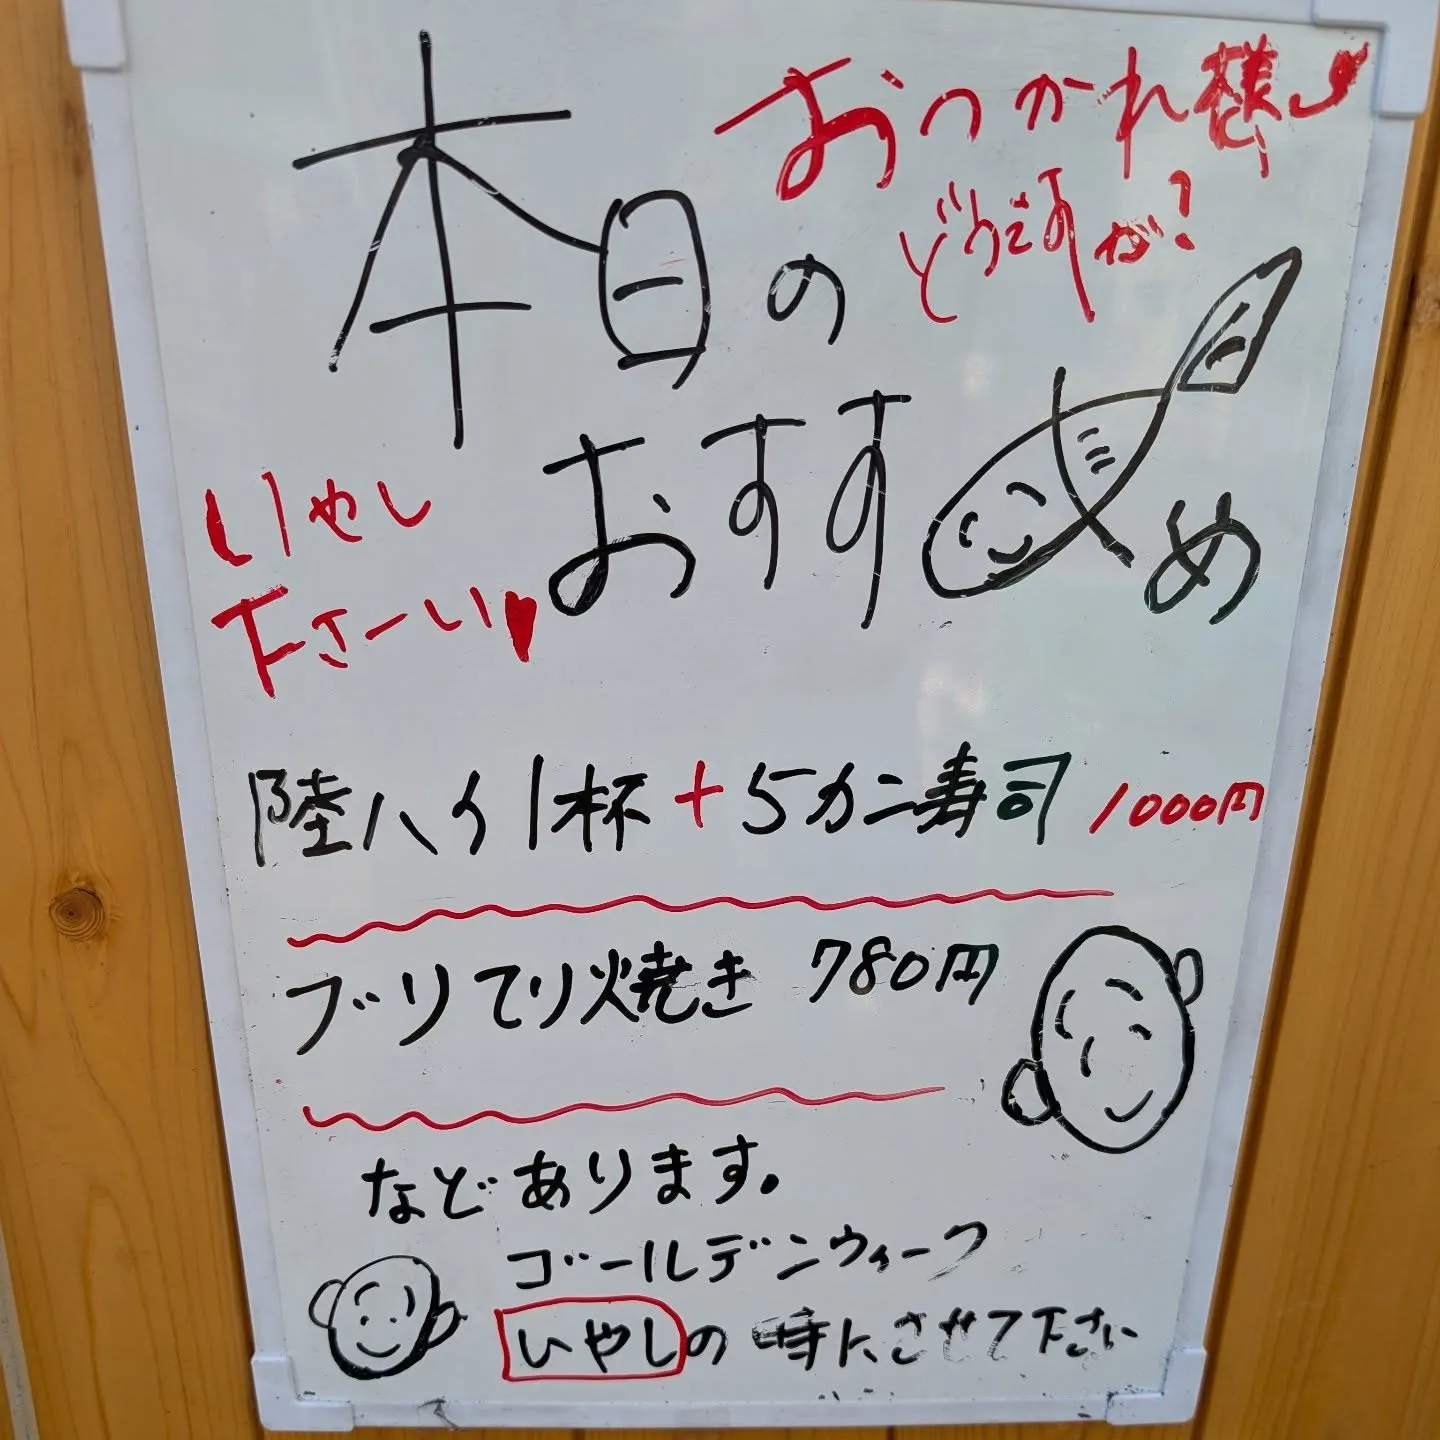 おつかれ様♥
どうですか?
本日の
おすすめ
いやし
下さーい♥
陸ハイ1杯+5カン寿司 1000円
ブリてり焼き 780円
などあります。
ゴールデンウィーク
いやしの時にさせて下さい